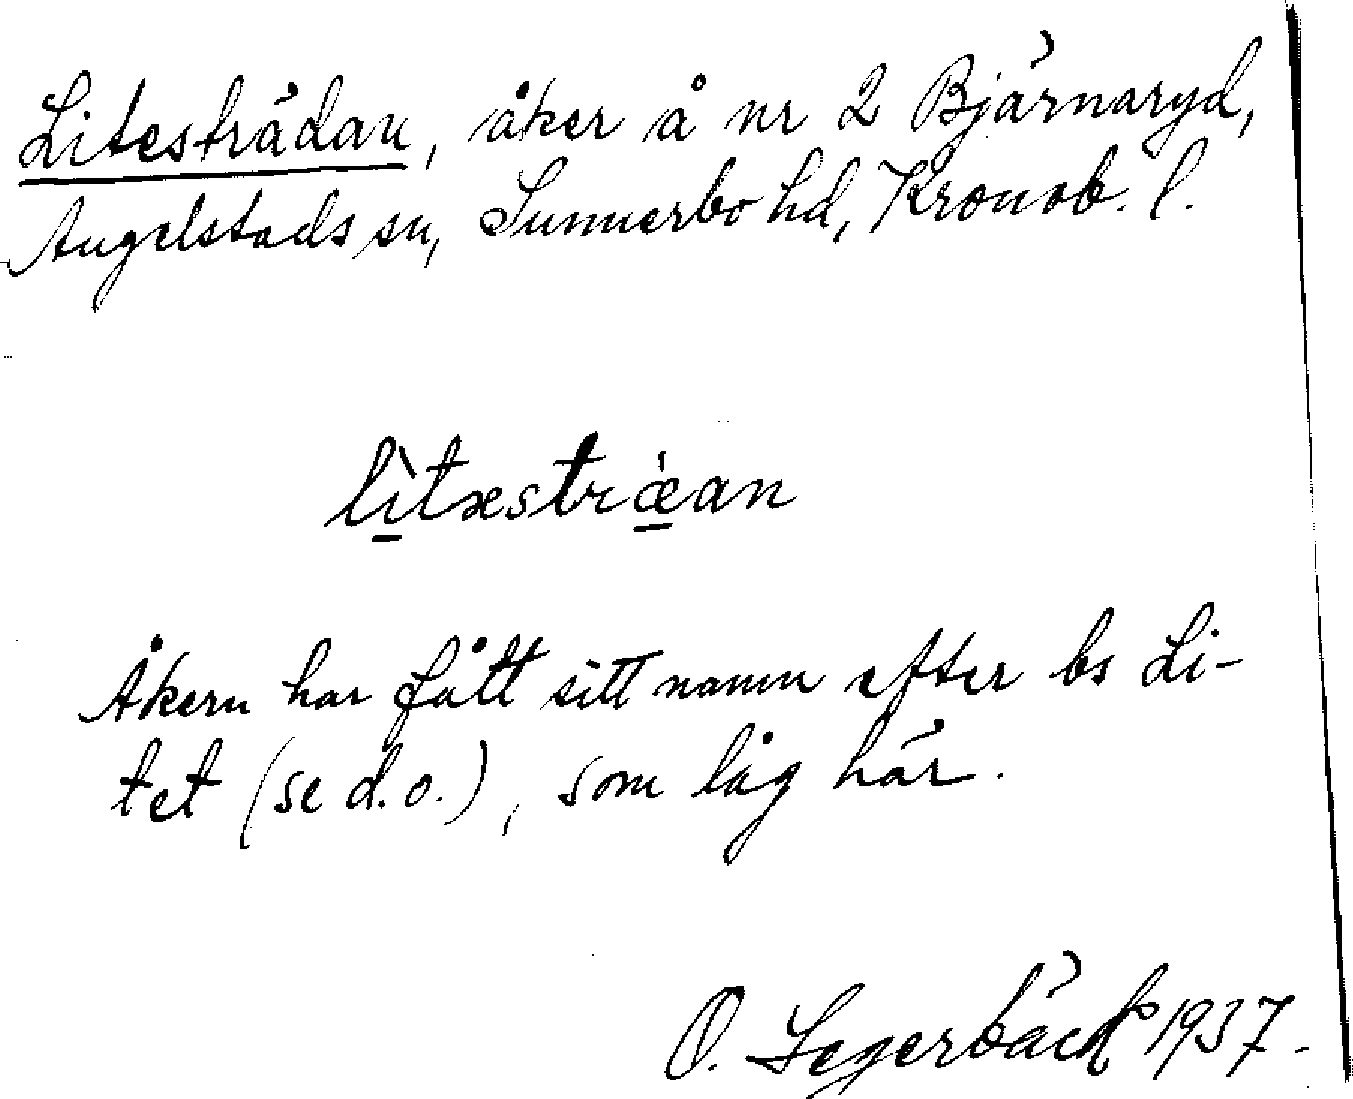 Liteströdan, åker å nr 2 Bjärnaryd,
Angelstads sn, Sunnerbo hd, Kronob. l.
lìtæstrœ̀an
Åkern har fått sitt namn efter bs Li-
tet (se d.o.), som låg här.
O. Segerbäck 1937.